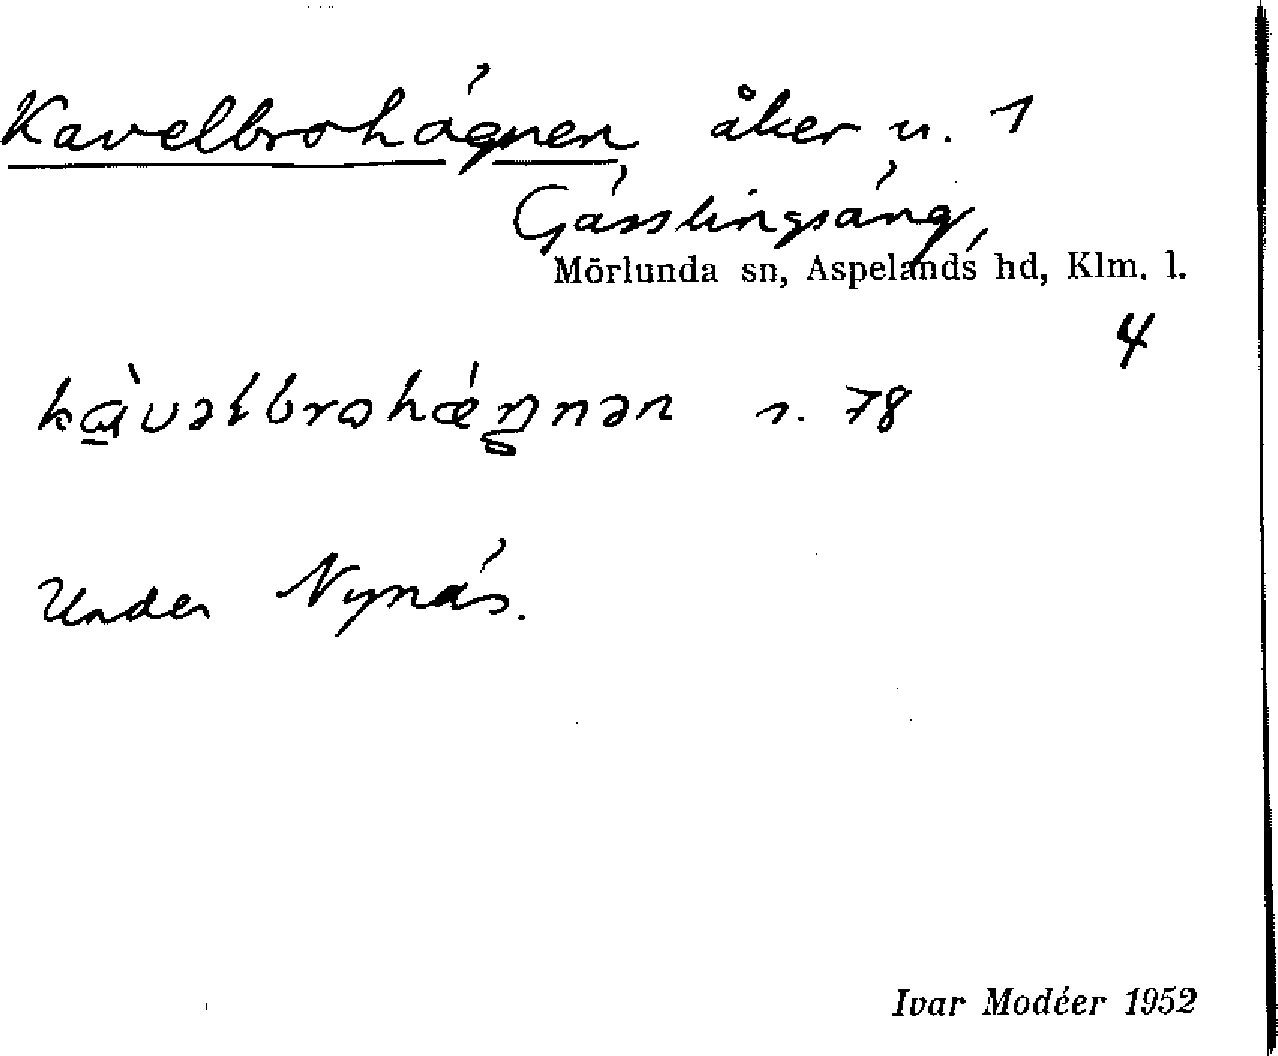 Kavelbrohägnen åker u. 1
Gässlingsäng,
Mörlunda sn, Aspelands hd, Klm. l.
4
kàvəlbrohǽŋnən s. 78
Under Nynäs.
Ivar Modéer 1952